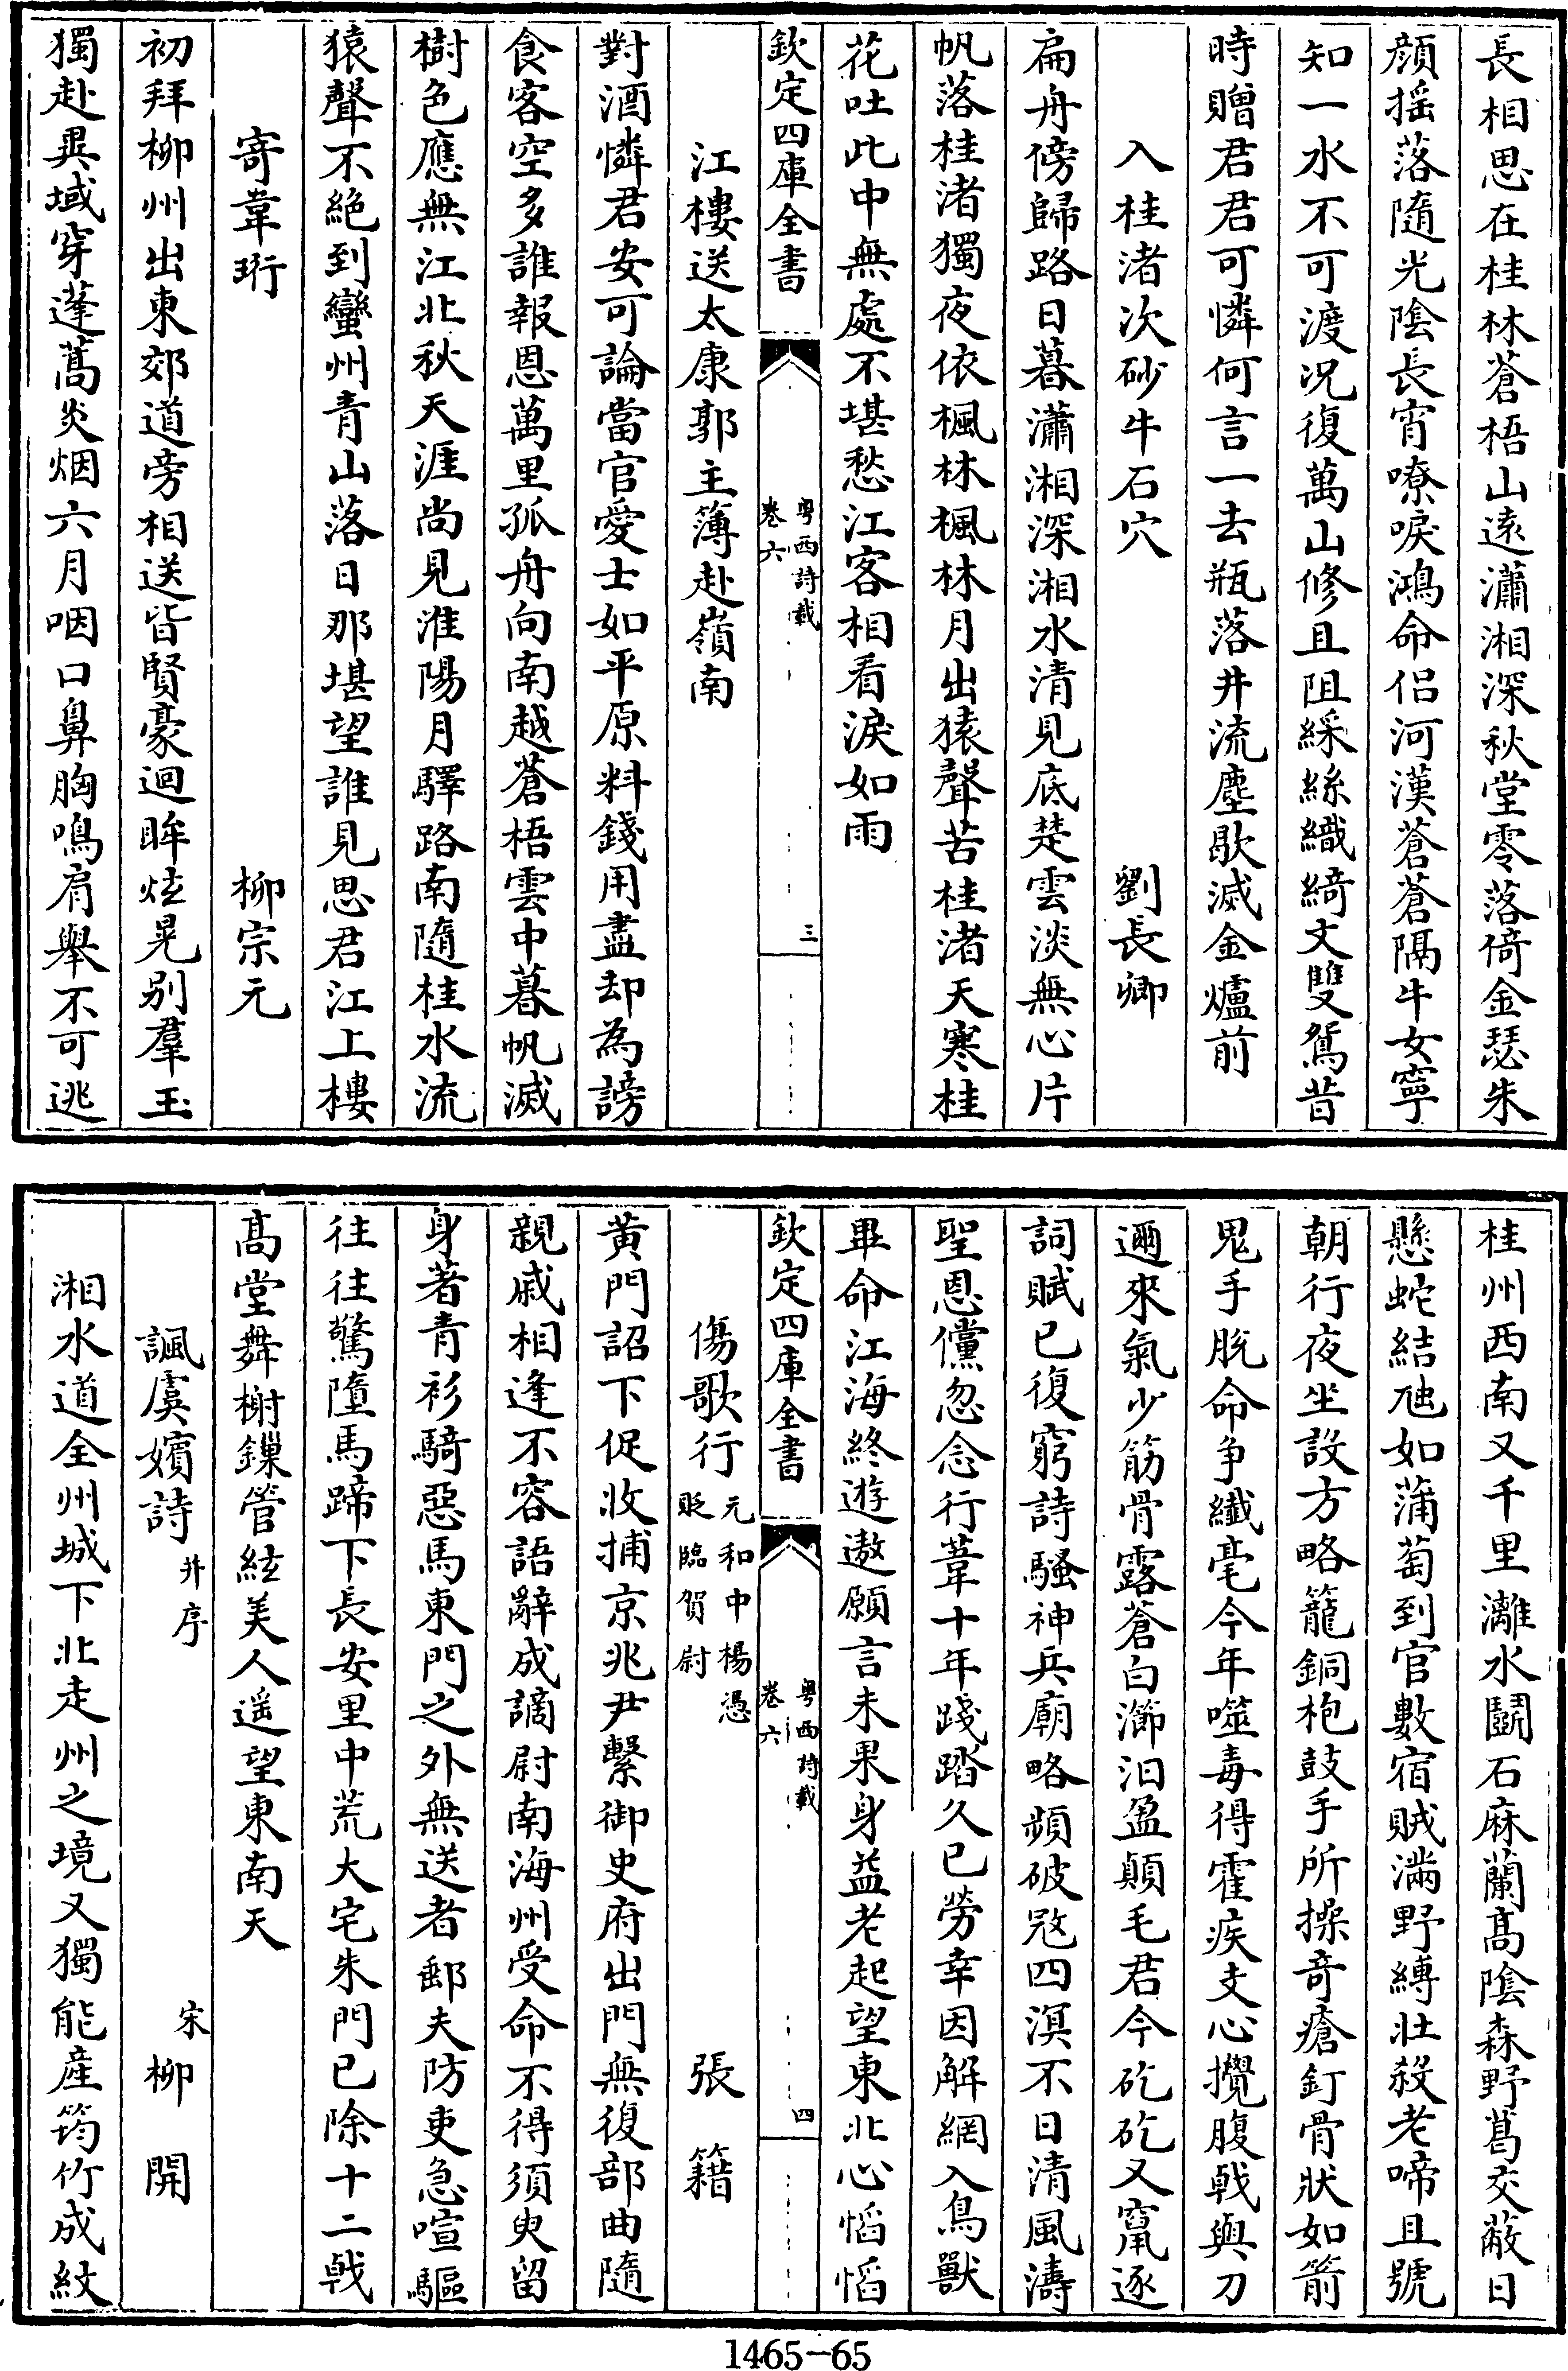 長相思在桂林蒼梧山遠瀟湘深秋堂零落倚金瑟朱
顔揺落隨光陰長宵嘹唳鴻命侶河漢蒼蒼隔牛女寧
知一水不可渡况復萬山修且阻綵絲織綺文雙鴛昔
時贈君君可憐何言一去瓶落井流塵歇滅金爐前
入桂渚次砂牛石穴 劉長卿
扁舟傍歸路日暮瀟湘深湘水清見底楚雲淡無心片
帆落桂渚獨夜依楓林楓林月出猿聲苦桂渚天寒桂
花吐此中無處不堪愁江客相看淚如雨
欽定四庫全書 粤西詩載 卷六 三
江樓送太康郭主簿赴嶺南
對酒憐君安可論當官愛士如平原料錢用盡却為謗
食客空多誰報恩萬里孤舟向南越蒼梧雲中暮帆滅
樹色應無江北秋天涯尚見淮陽月驛路南隨桂水流
猿聲不絶到蠻州青山落日那堪望誰見思君江上樓
寄韋珩 柳宗元
初拜柳州出東郊道旁相送皆賢豪迴眸炫晃别羣玉
獨赴異域穿蓬蒿炎烟六月咽口鼻胸鳴肩舉不可逃
桂州西南又千里灕水鬭石麻蘭髙陰森野葛交蔽日
懸蛇結虺如蒲萄到官數宿賊滿野縛壯殺老啼且號
朝行夜坐設方略籠銅枹鼓手所操竒瘡釘骨狀如箭
鬼手脱命争纎毫今年噬毒得霍疾支心攪腹戟與刀
邇來氣少筋骨露蒼白瀄汩盈顛毛君今矻矻又竄逐
詞賦已復窮詩騷神兵廟略頻破冦四溟不日清風濤
聖恩儻忽念行葦十年踐踏久已勞幸因解網入鳥獸
畢命江海終遊遨願言未果身益老起望東北心慆慆
欽定四庫全書 粤西詩載 卷六 四
傷歌行 元和中楊憑貶臨賀尉 張籍
黄門詔下促收捕京兆尹繫御史府出門無復部曲隨
親戚相逢不容語辭成謫尉南海州受命不得須臾留
身著青衫騎惡馬東門之外無送者郵夫防吏急喧驅
往往驚墮馬蹄下長安里中荒大宅朱門已除十二戟
髙堂舞榭鏁管絃美人遥望東南天
諷虞嬪詩 并序 宋 柳開
湘水道全州城下北走州之境又獨能産筠竹成紋
1465-65